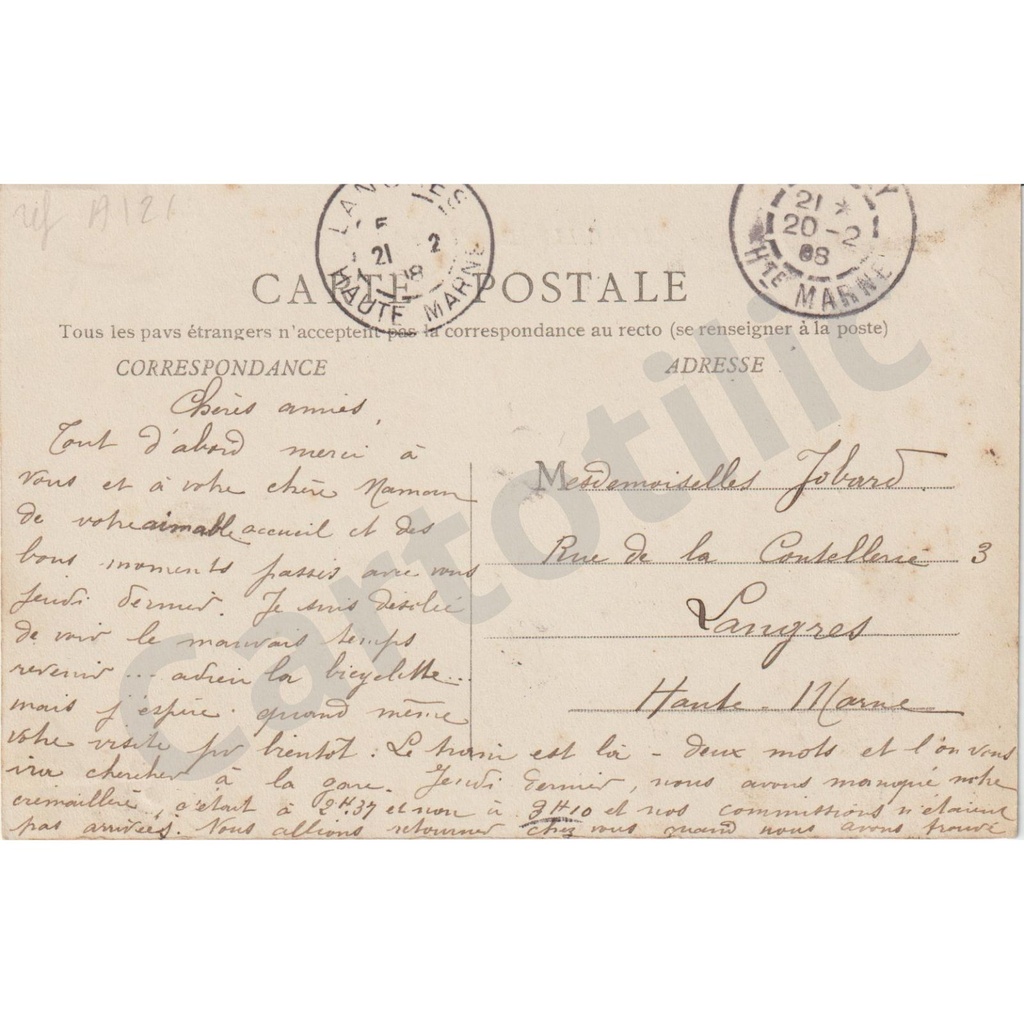 réf A121
LANGRES
5
21 2
08
HAUTE MARNE
21 *
20-2
08
Hte MARNE
CARTE POSTALE
Tous les pays étrangers n'acceptent pas la correspondance au recto (se renseigner à la poste)
CORRESPONDANCE
ADRESSE
Chères amies,
Tout d'abord merci à
vous et à votre chère Maman
de votre aimable accueil et des
bons moments passés avec vous
jeudi dernier. Je suis désolée
de voir le mauvais temps
revenir... adieu la bicyclette...
mais j'espère quand même
votre visite pr bientôt. Le train est là - deux mots et l'on vous
ira chercher à la gare. Jeudi dernier, nous avons manqué notre
cremaillère, c'était à 2H37 et non à 3H10 et nos commissions n'étaient
pas arrivées. Nous allions retourner chez vous quand nous avons trouvé
Mesdemoiselles Jobard
Rue de la Coutellerie 3
Langres
Haute-Marne
Cartotilic